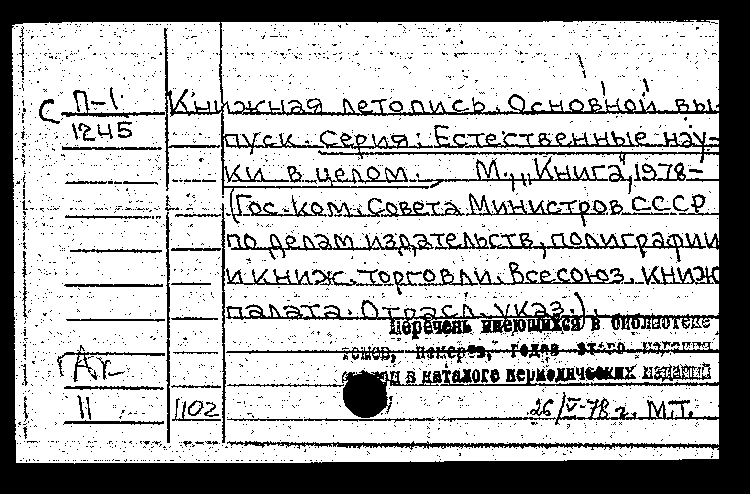 С П-1 Книжная летопись. Основной вы-
1245 пуск. Серия: Естественные нау-
ки в целом. М., „Книга", 1978-
(Гос. ком. Совета Министров СССР
по делам издательств, полиграфии
и книж. торговли. Всесоюз. книж
палата. Отрасл. указ.).
Перечень имеющихся в библиотеке
томов, номеров, годов этого издания
в каталоге периодических изданий
II 1102 26/V-78 г. М.Т.